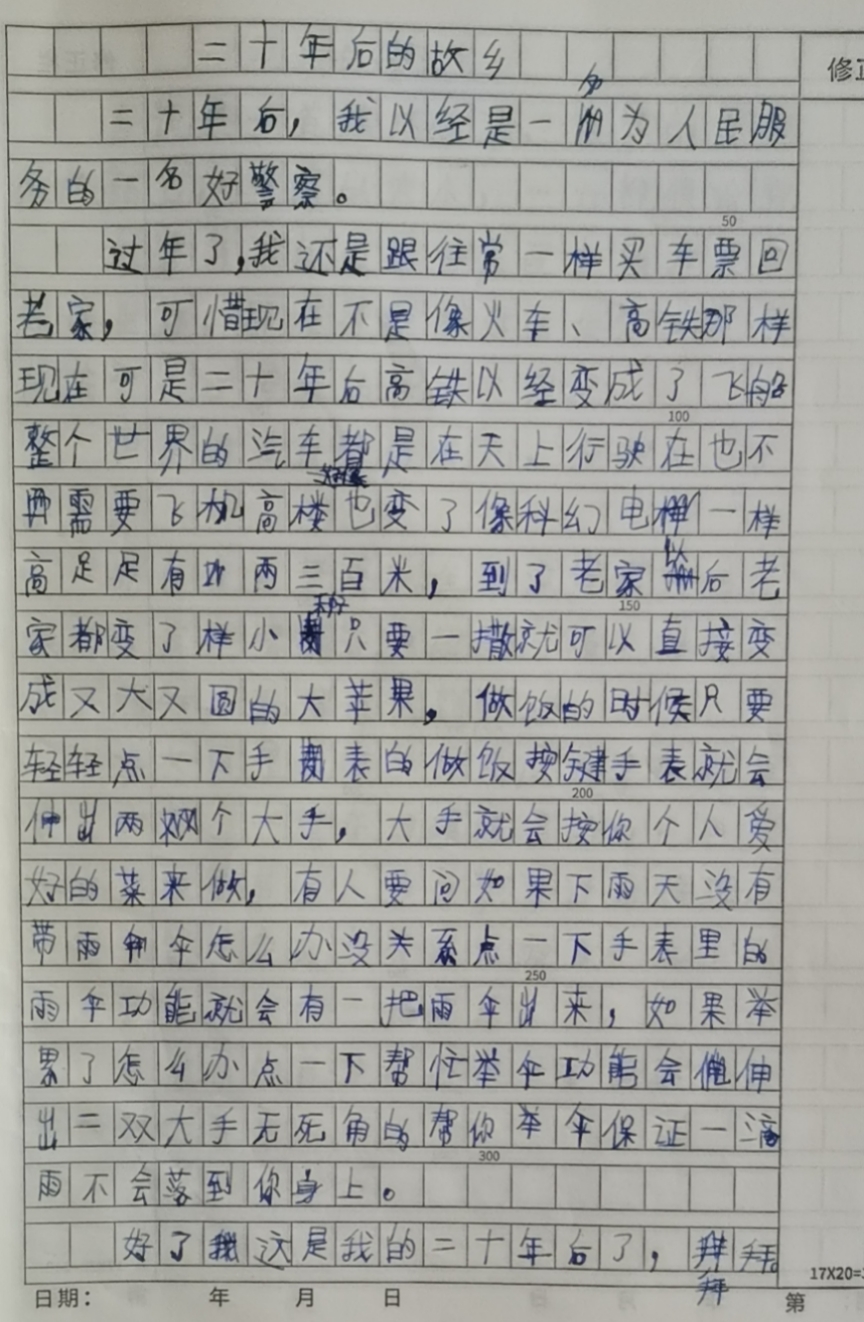 二十年后的故乡
修正
二十年后，我以经是一名为人民服
务的一名好警察。
50
过年了，我还是跟往常一样买车票回
老家，可惜现在不是像火车、高铁那样
现在可是二十年后高铁以经变成了飞船
100
整个世界的汽车都是在天上行驶在也不
需要飞机高楼也变了像科幻电一样
高足足有两三百米，到了老家以后老
150
家都变了样小种子只要一撒就可以直接变
成又大又圆的大苹果，做饭的时候只要
轻轻点一下手表的做饭按键手表就会
200
伸出两个大手，大手就会按你个人爱
好的菜来做，有人要问如果下雨天没有
带雨伞怎么办没关系点一下手表里的
250
雨伞功能就会有一把雨伞出来，如果举
累了怎么办点一下帮忙举伞功能会伸
出二双大手无死角的帮你举伞保证一滴
300
雨不会落到你身上。
好了这是我的二十年后了，拜拜。
17X20=3
日期： 年 月 日 第